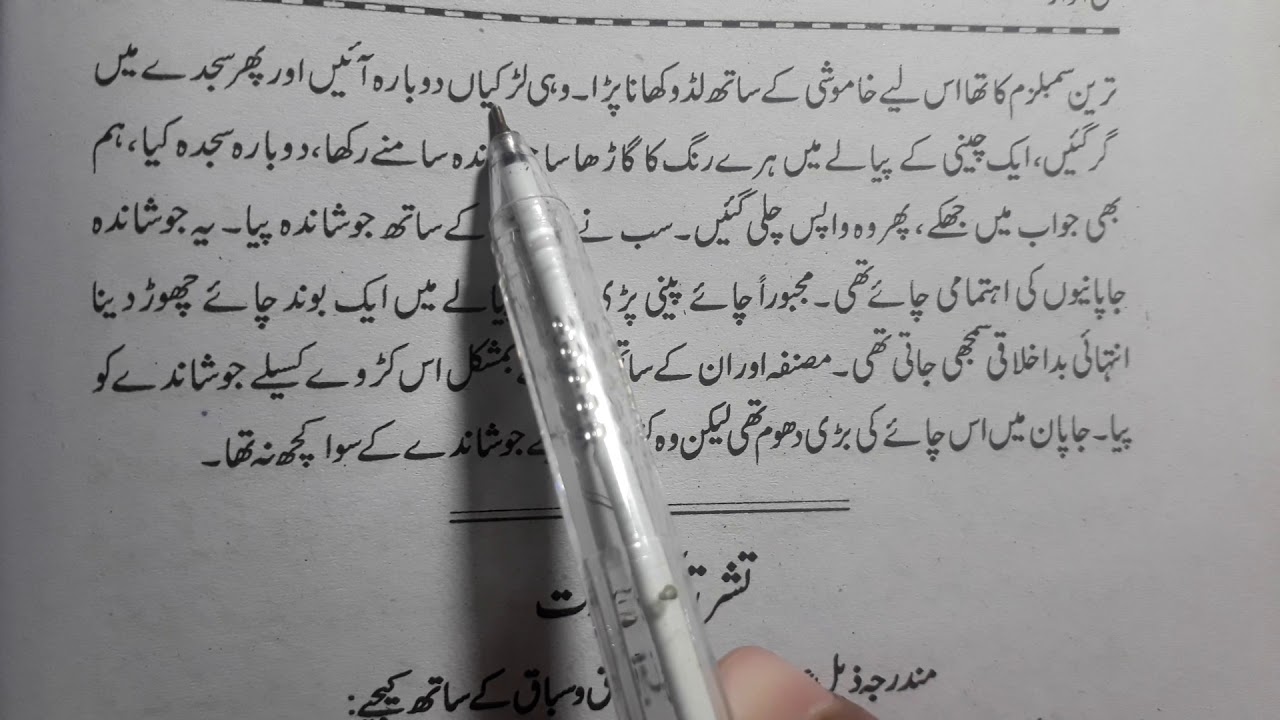 ترین سمبلزم کا تھا اس لیے خاموشی کے ساتھ لڈو کھانا پڑا۔ وہی لڑکیاں دوبارہ آئیں اور پھر سجدے میں
گر گئیں، ایک چینی کے پیالے میں ہرے رنگ کا گاڑھا سا سامنے رکھا، دوبارہ سجدہ کیا، ہم
بھی جواب میں جھکے، پھر وہ واپس چلی گئیں۔ سب نے کے ساتھ جوشاندہ پیا۔ یہ جوشاندہ
جاپانیوں کی اہتمامی چائے تھی۔ مجبوراً چائے پینی پڑی میں ایک بوند چائے چھوڑ دینا
انتہائی بداخلاقی سمجھی جاتی تھی۔ مصنفہ اور ان کے بمشکل اس کڑوے کسیلے جوشاندے کو
پیا۔ جاپان میں اس چائے کی بڑی دھوم تھی لیکن وہ جوشاندے کے سوا کچھ نہ تھا۔
مندرجہ ذیل و سباق کے ساتھ کیجیے: